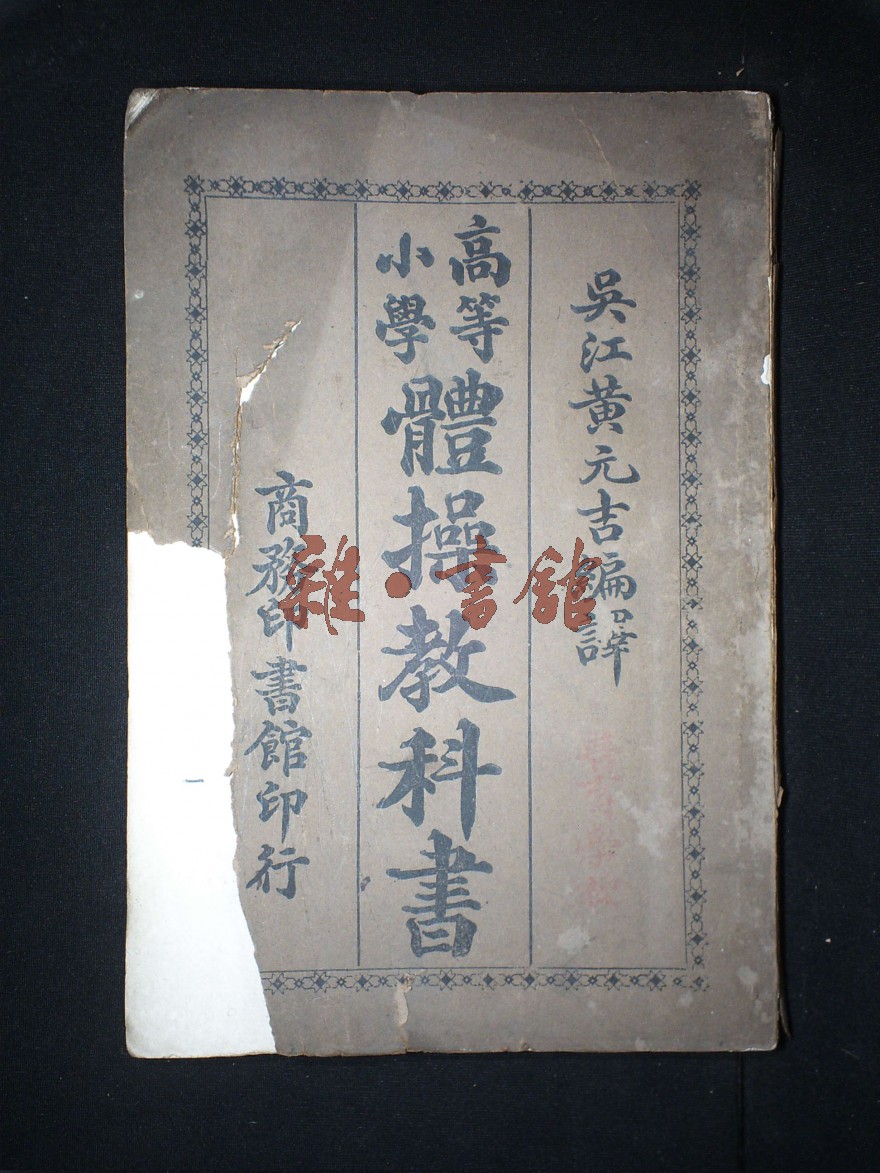 吳江黃元吉編譯
高等
小學
體操教科書
商務印書館印行
雜·書館